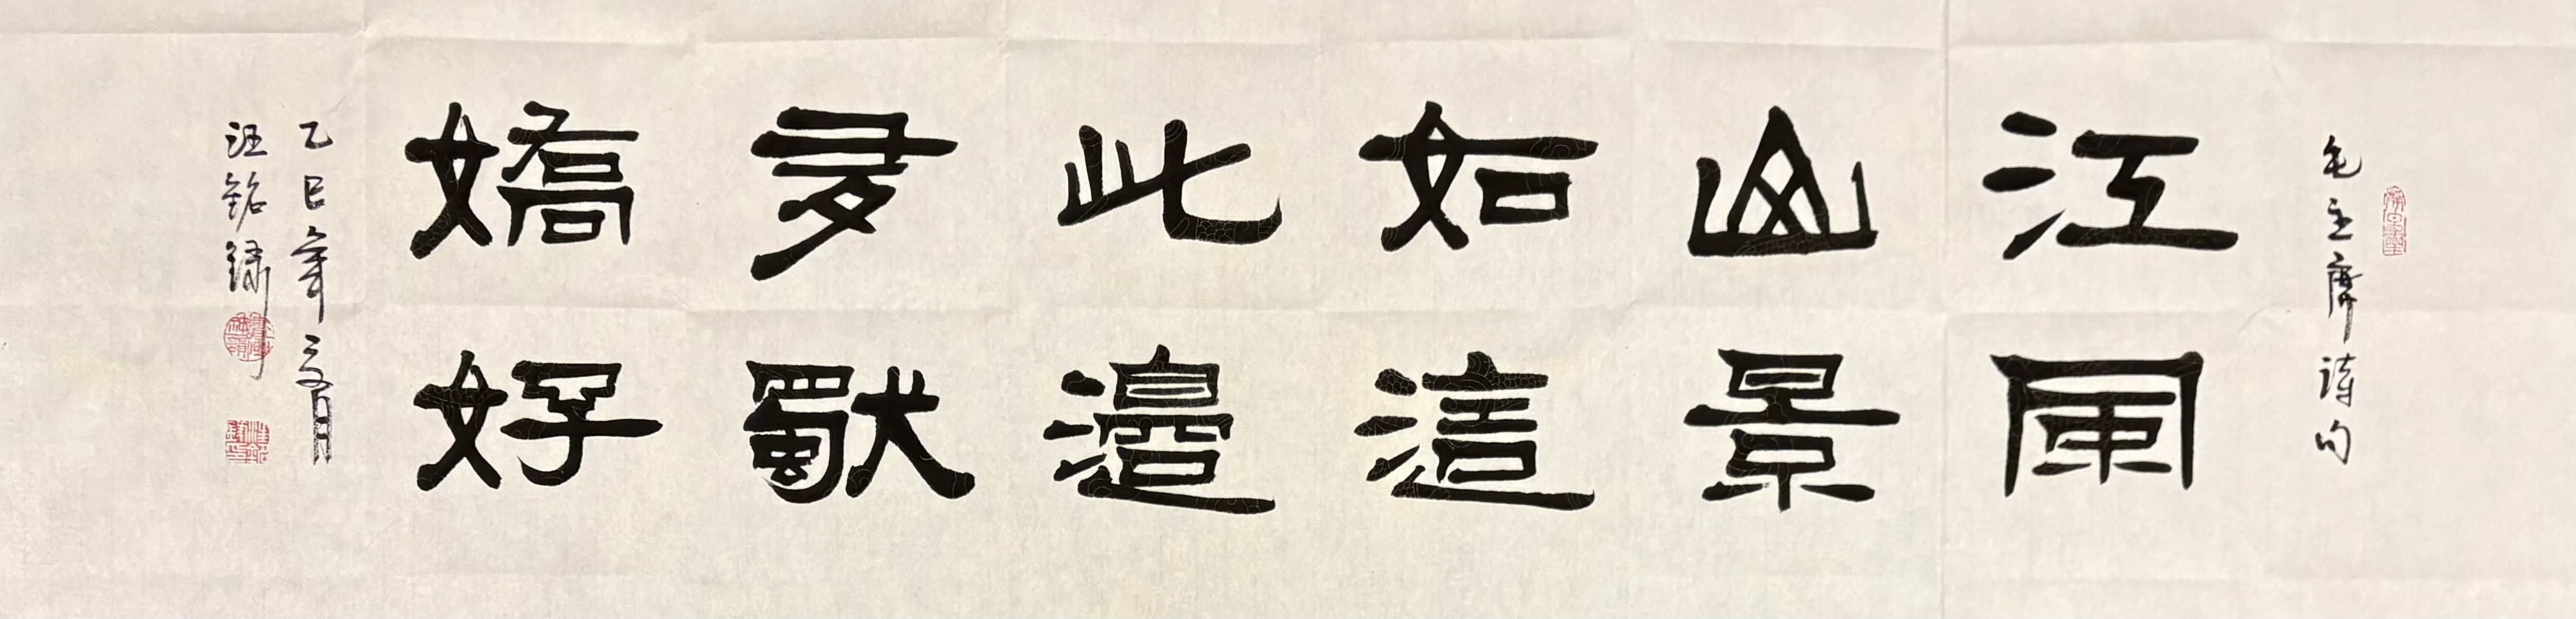 毛主席詩句
江山如此多嬌
風景這邊獨好
乙巳年夏月
汪銘